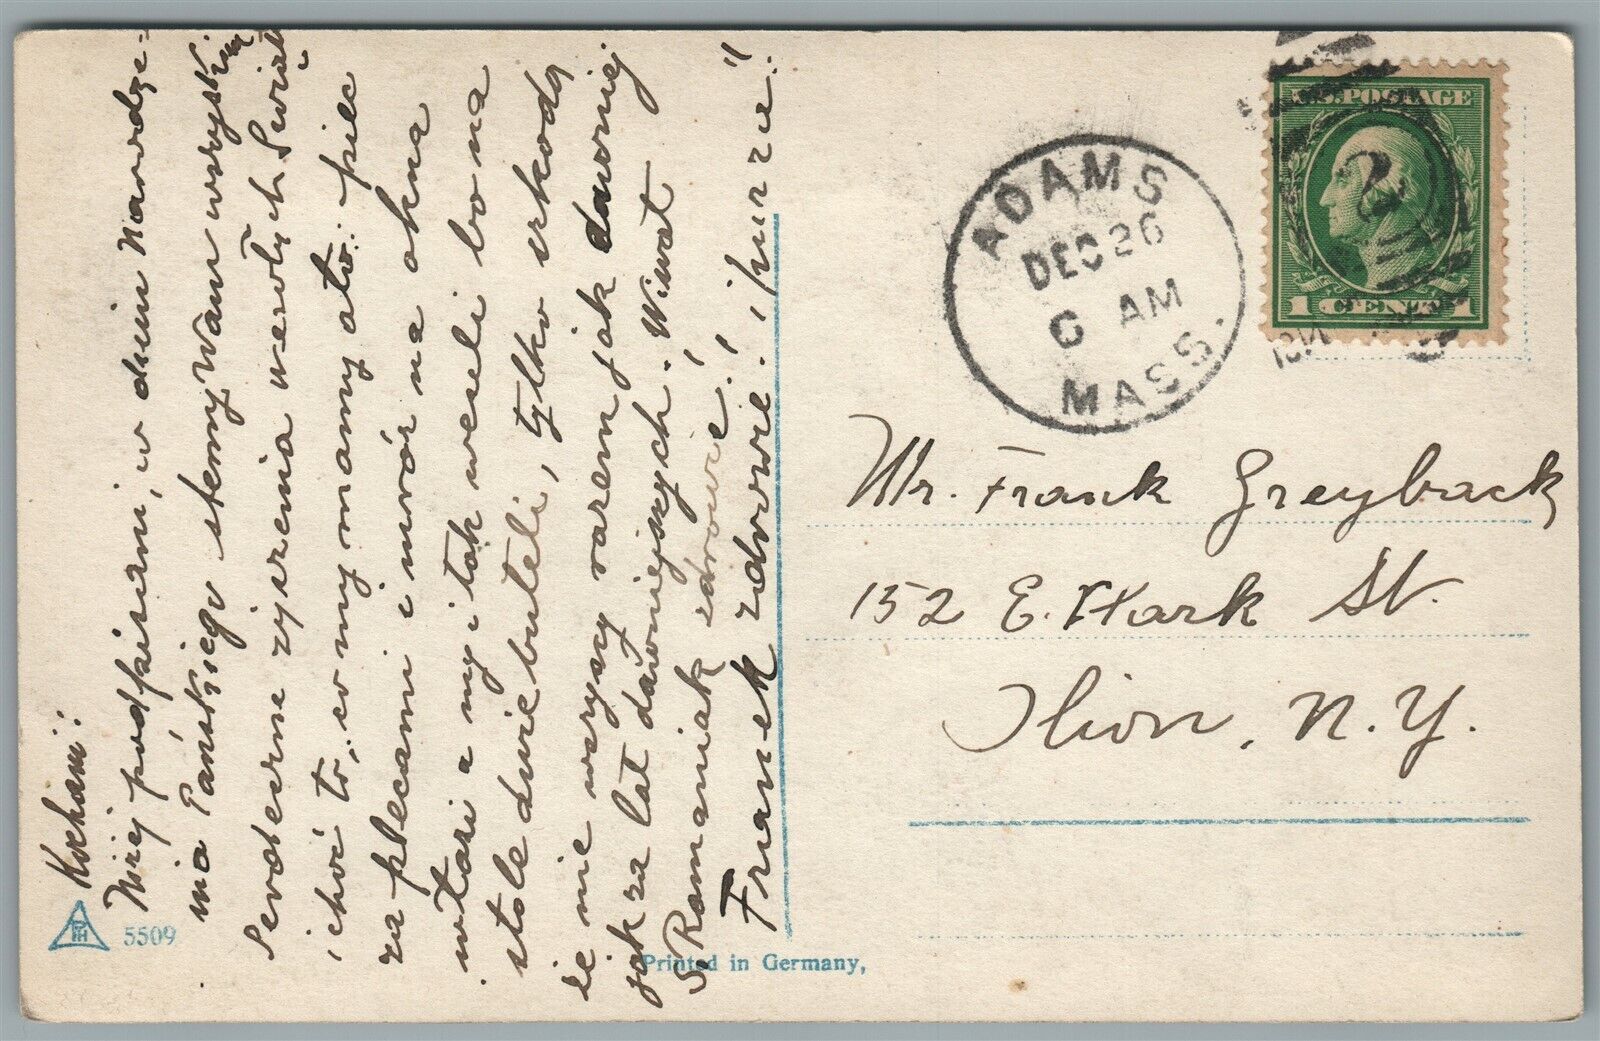 Kochani:
Niżej podpisani, w dniu Narodze-
nia Pańskiego ślemy Wam wszystkim
Serdeczne życzenia wesołych Świąt
i choć to, co my mamy a to: piec
za plecami i mróz na okna
wtari a my i tak weseli bo na
stole dwie buteli, tylko szkoda
że nie wszyscy razem jak dawniej
jak za lat dawniejszych. Wiwat
S. Romaniak zdrowie!
Franek zdrowie! i hurra!!
5509
Printed in Germany,
ADAMS
DEC 26
6 AM
MASS.
U.S. POSTAGE
2
1 CENT 1
Mr. Frank Greyback
152 E. Clark St.
Ilion, N.Y.